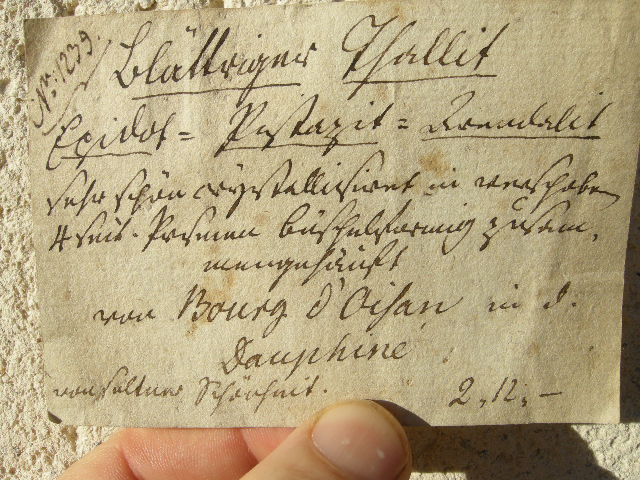 Nr. 1239.
Blättriger Thallit
Epidot = Pistazit = Arendalit
sehr schön crystallisiret in verschoben
4 seit. Prismen büschelförmig zusam,
mengehäuft
von Bourg d'Oisan in d.
Dauphiné
von seltner Schönheit. 2,,12,, —